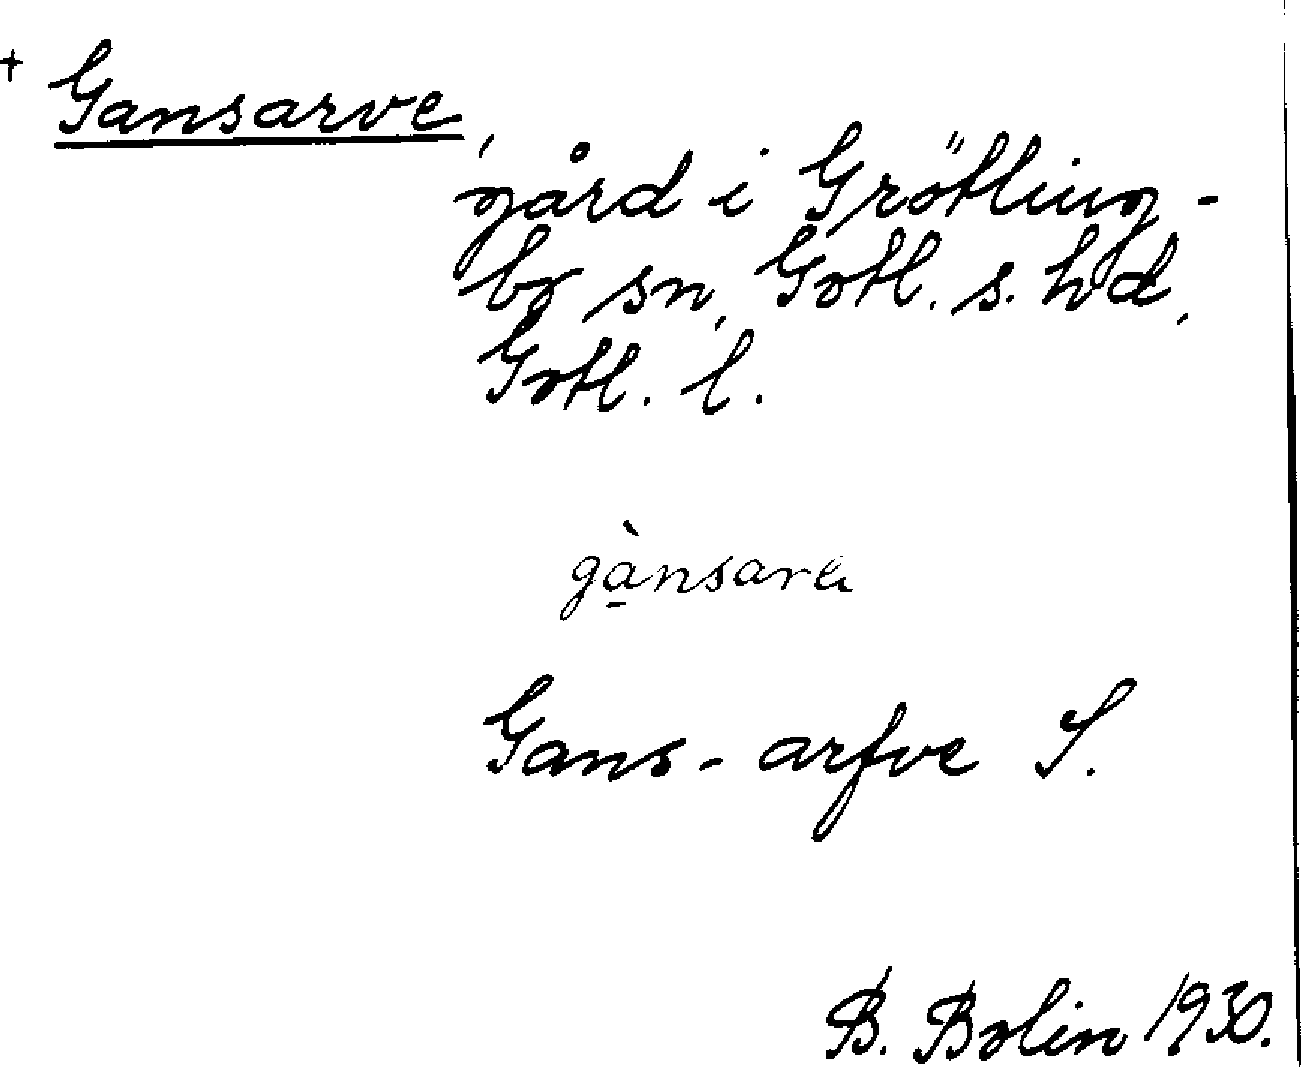 + Gansarve,
gård i Grötling-
bo sn, Gotl. s. hd,
Gotl. l.
gànsarɐ
Gans-arfve S.
B. Bolin 1930.